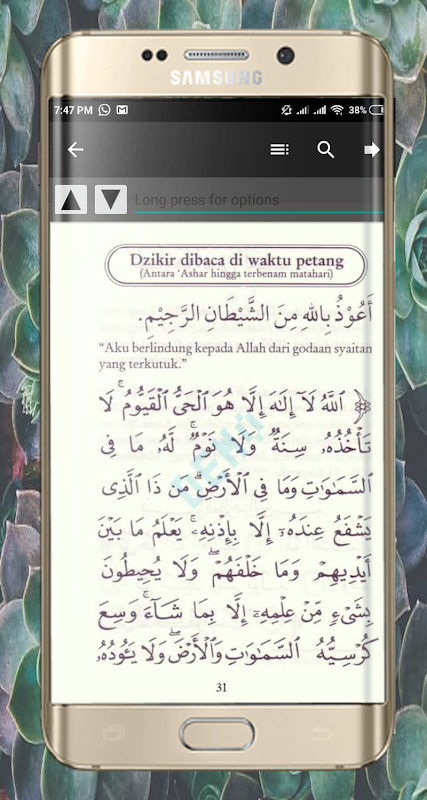 SAMSUNG
7:47 PM
38%
Long press for options
Dzikir dibaca di waktu petang
(Antara ‘Ashar hingga terbenam matahari)
أَعُوْذُ بِاللهِ مِنَ الشَّيْطَانِ الرَّجِيْمِ.
“Aku berlindung kepada Allah dari godaan syaitan
yang terkutuk.”
﴿ ٱللَّهُ لَآ إِلَٰهَ إِلَّا هُوَ ٱلْحَىُّ ٱلْقَيُّومُ ۚ لَا
تَأْخُذُهُۥ سِنَةٌ وَلَا نَوْمٌ ۚ لَّهُۥ مَا فِى
ٱلسَّمَٰوَٰتِ وَمَا فِى ٱلْأَرْضِ ۗ مَن ذَا ٱلَّذِى
يَشْفَعُ عِندَهُۥٓ إِلَّا بِإِذْنِهِۦ ۚ يَعْلَمُ مَا بَيْنَ
أَيْدِيهِمْ وَمَا خَلْفَهُمْ ۖ وَلَا يُحِيطُونَ
بِشَىْءٍ مِّنْ عِلْمِهِۦٓ إِلَّا بِمَا شَآءَ ۚ وَسِعَ
كُرْسِيُّهُ ٱلسَّمَٰوَٰتِ وَٱلْأَرْضَ ۖ وَلَا يَـُٔودُهُۥ
31